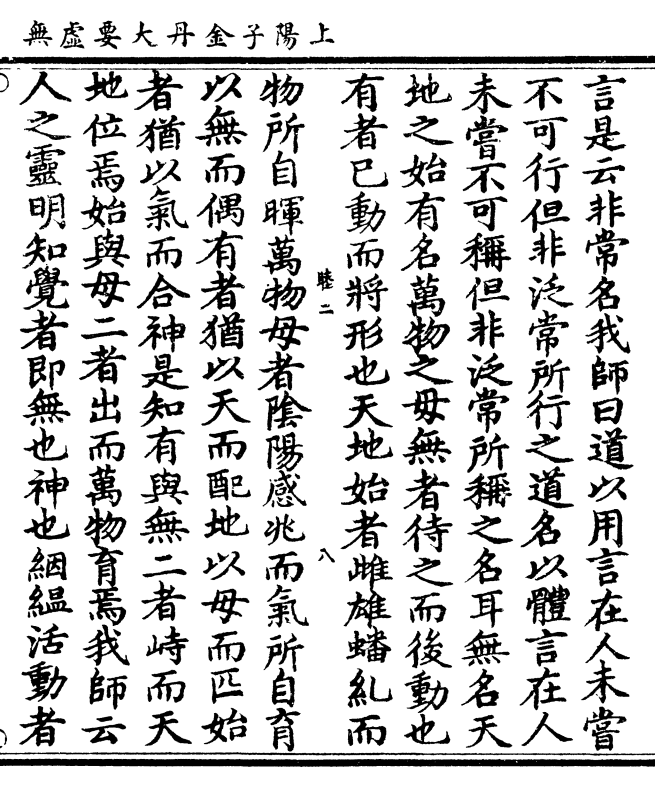 上陽子金丹大要虛無
言是云非常名我師曰道以用言在人未嘗
不可行但非泛常所行之道名以體言在人
未嘗不可稱但非泛常所稱之名耳無名天
地之始有名萬物之母無者待之而後動也
有者已動而將形也天地始者雌雄蟠糺而
睦二
八
物所自暉萬物母者陰陽感兆而氣所自育
以無而偶有者猶以天而配地以母而匹始
者猶以氣而合神是知有與無二者峙而天
地位焉始與母二者出而萬物育焉我師云
人之靈明知覺者即無也神也絪縕活動者